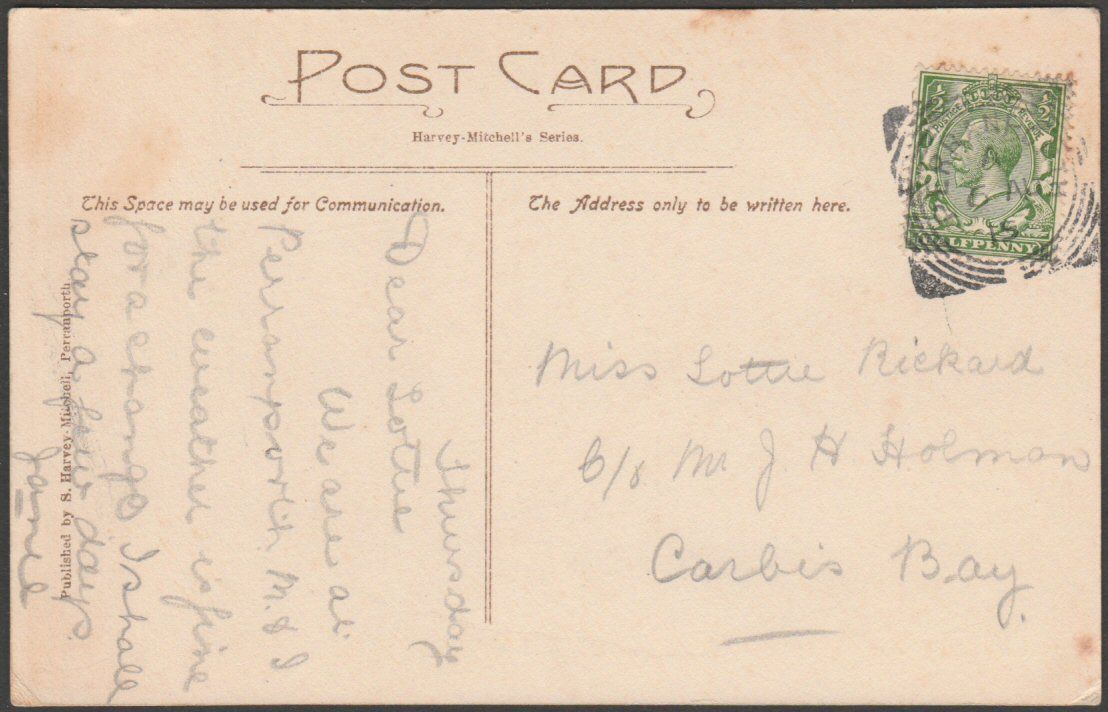 POST CARD
Harvey-Mitchell's Series.
This Space may be used for Communication.
The Address only to be written here.
Thursday
Dear Lottie
We are at
Perranporth M. & I
the weather is fine
for a change I shall
stay a few days.
Published by S. Harvey-Mitchell, Perranporth
Miss Lottie Rickard
C/o Mr J H Holman
Carbis Bay
½ ½
POSTAGE REVENUE
HALFPENNY
15